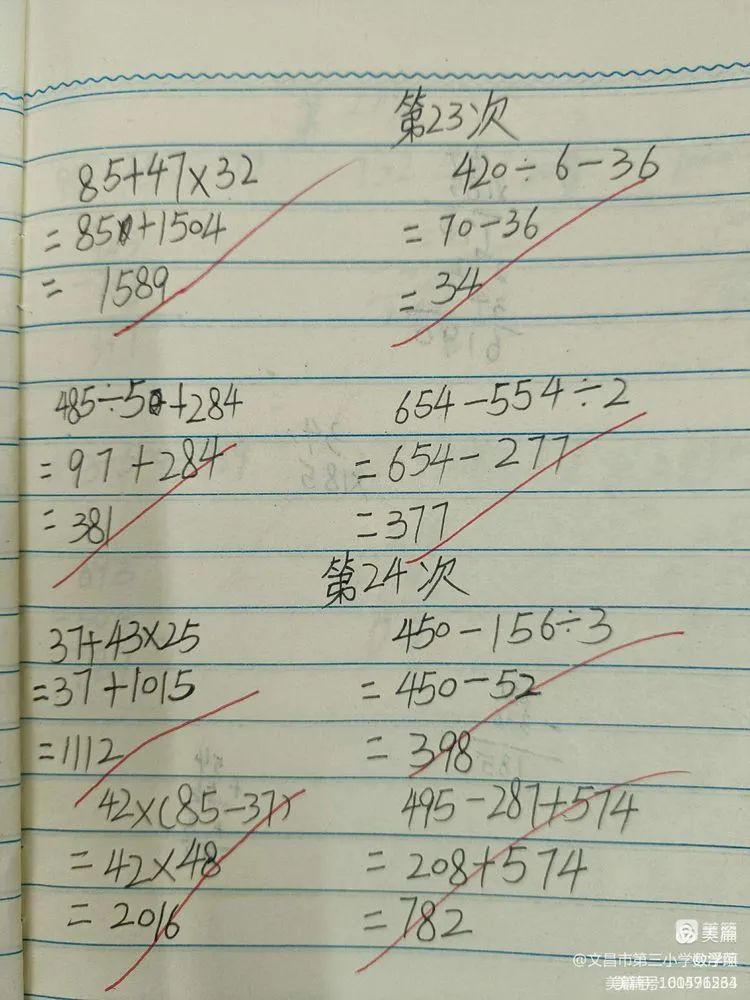 第23次
85+47×32
=85+1504
= 1589
420÷6-36
=70-36
=34
485÷5+284
=97+284
=381
654-554÷2
=654-277
=377
第24次
37+43×25
=37+1015
=1112
450-156÷3
=450-52
=398
42×(85-37)
=42×48
=2016
495-287+574
=208+574
=782
美篇
@文昌市第三小学
美篇号